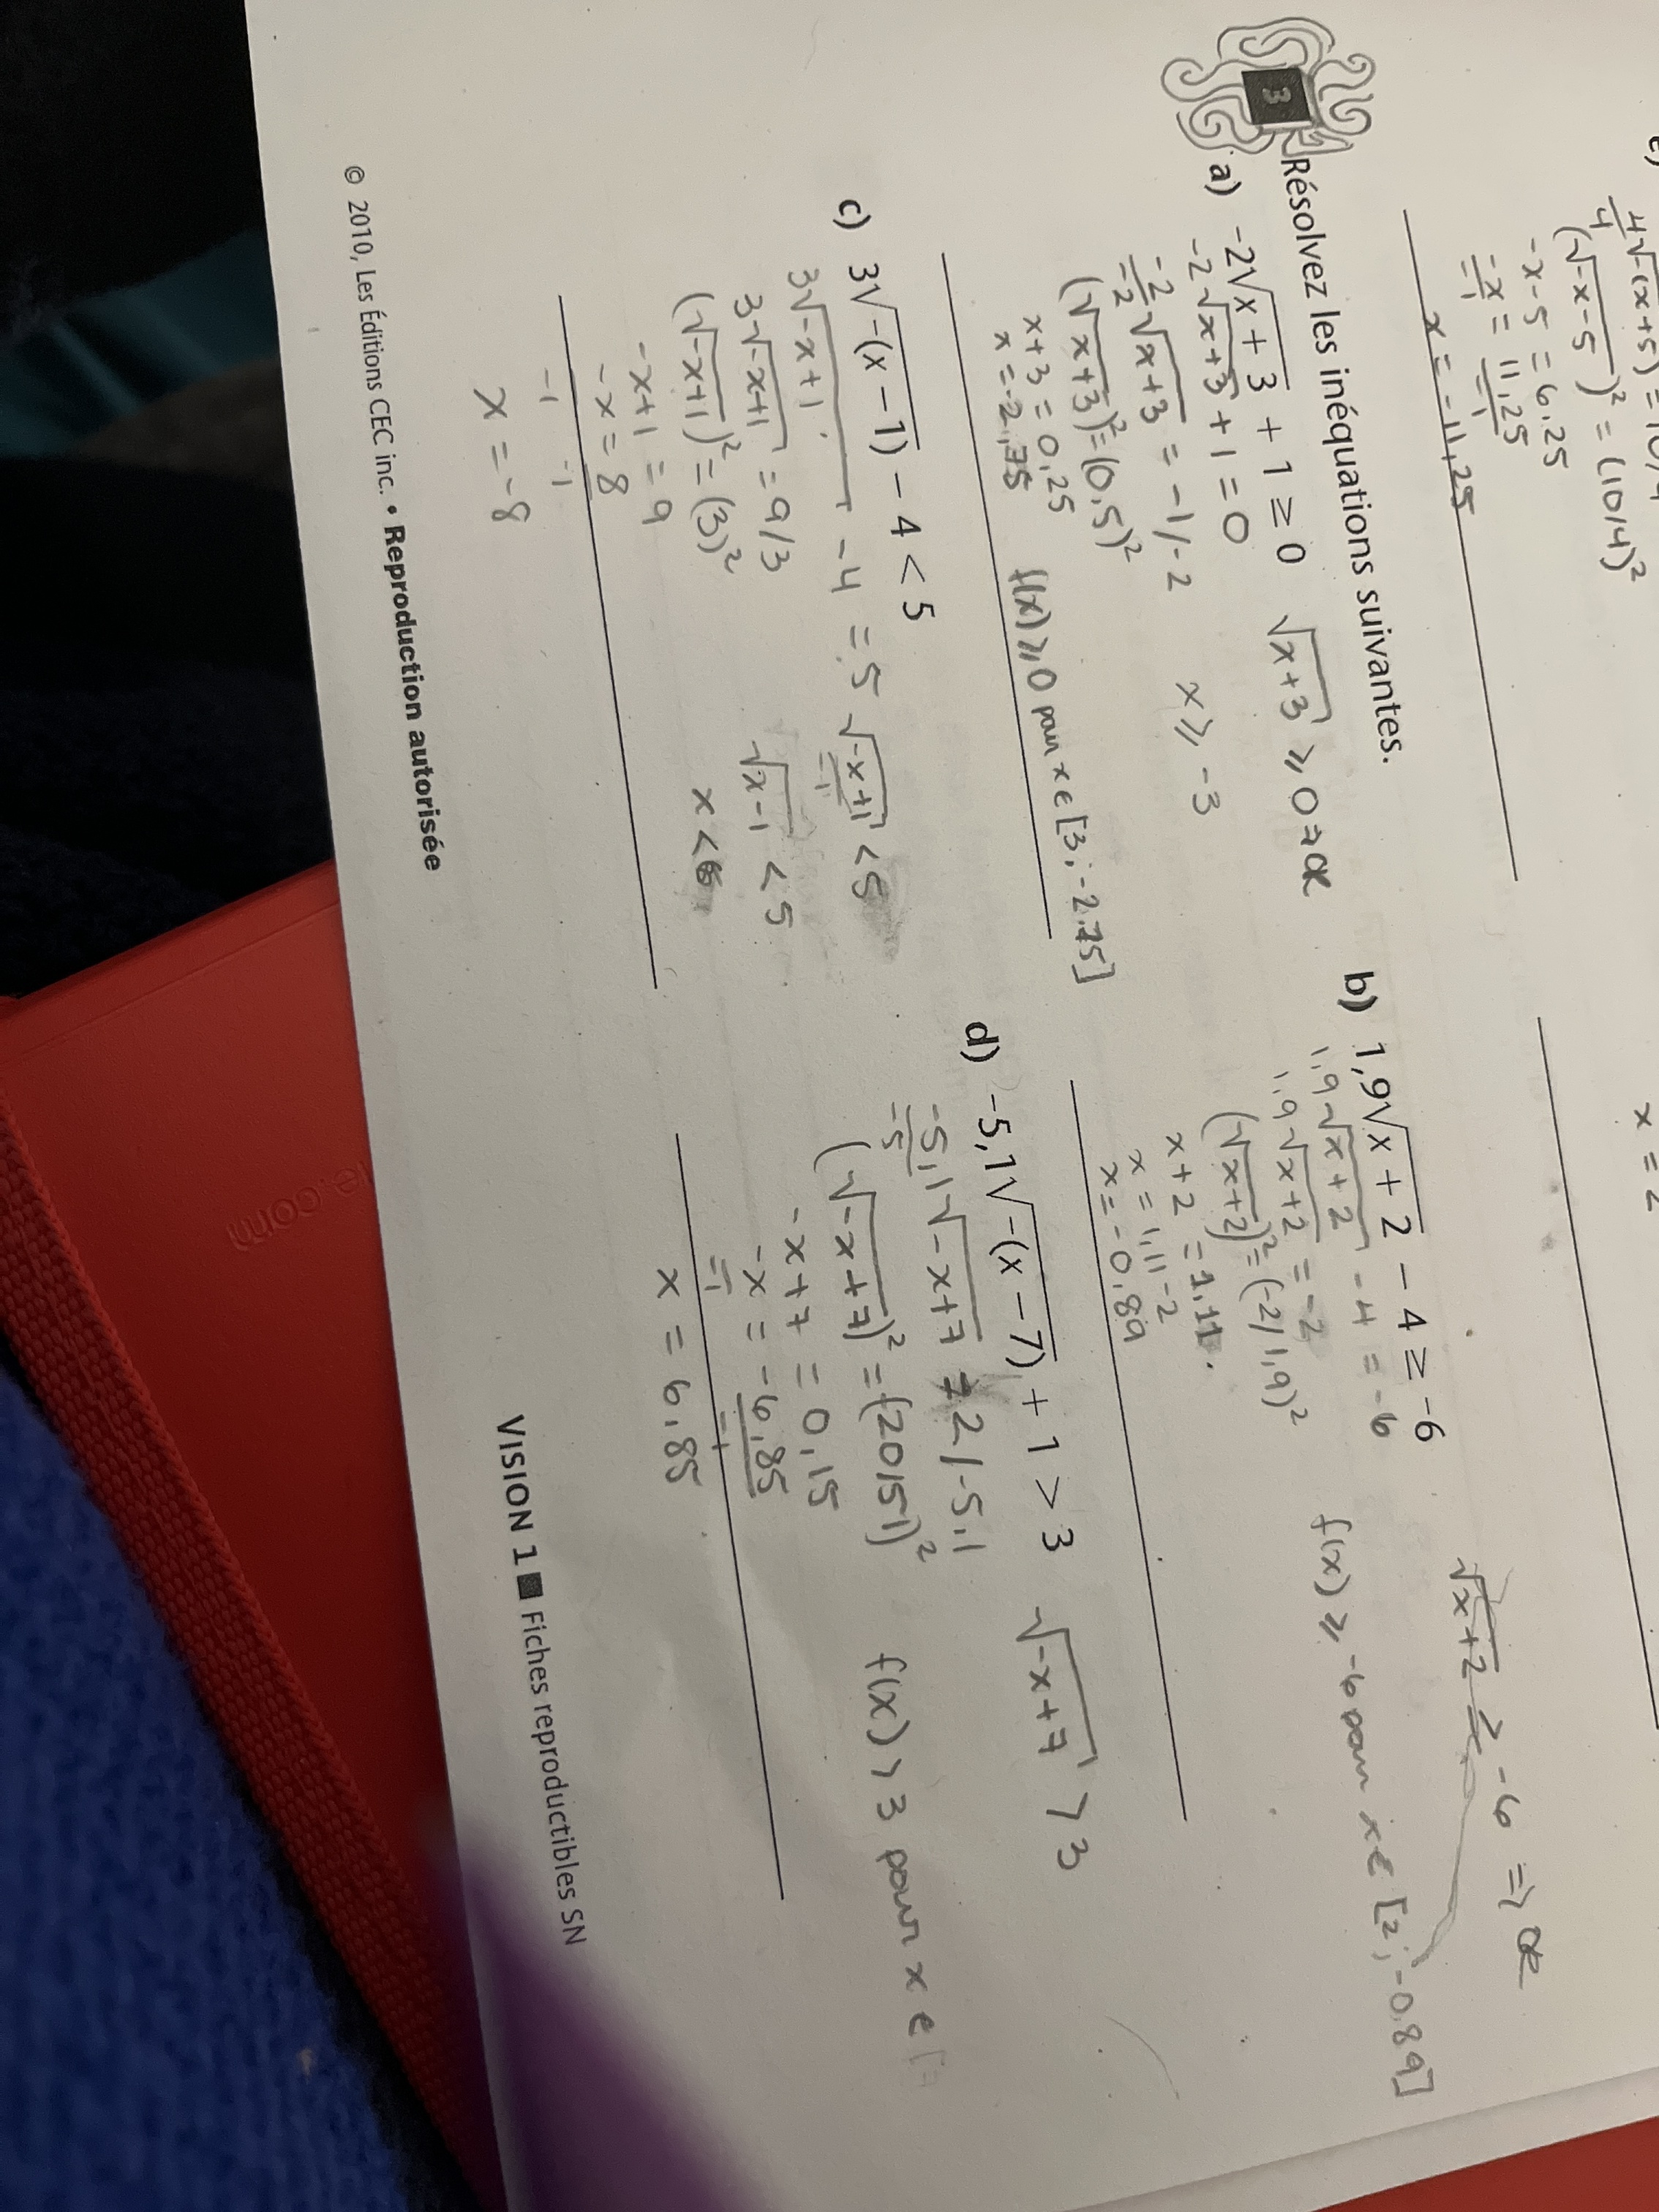 4√-(x+5) =
4
(√-x-5)² = (10/4)²
-x-5 = 6,25
-x = 11,25
-1 -1
x = -11,25
3 Résolvez les inéquations suivantes.
a) -2√x + 3 + 1 ≥ 0
√x+3 ⩾ 0
-2√x+3 + 1 = 0
x ⩾ -3
-2√x+3 = -1/-2
-2
(√x+3)² = (0,5)²
x+3 = 0,25
x = -2,75
f(x) ⩾ 0 pour x ∈ [3 ; -2.75]
b) 1,9√x + 2 - 4 ≥ -6
√x+2 ⩾ -6 ⇒
1,9√x+2 - 4 = -6
1,9√x+2 = -2
(√x+2)² = (-2/1,9)²
x+2 = 1,11
x = 1,11-2
x = -0,89
f(x) ⩾ -6 pour x ∈ [2 ; -0,89]
c) 3√-(x - 1) - 4 < 5
3√-x+1 - 4 = 5
3√-x+1 = 9/3
(√-x+1)² = (3)²
-x+1 = 9
-x = 8
-1 -1
x = -8
√-x+1 < 5
-1
√x-1 < 5
x <
d) -5,1√-(x - 7) + 1 > 3
√-x+7 > 3
-5,1√-x+7 = 2/-5,1
-5
(√-x+7)² = (20/51)²
-x+7 = 0,15
-x = -6,85
-1 -1
x = 6,85
f(x) > 3 pour x ∈ [
x = 2
© 2010, Les Éditions CEC inc. • Reproduction autorisée
VISION 1 ■ Fiches reproductibles SN
le.com